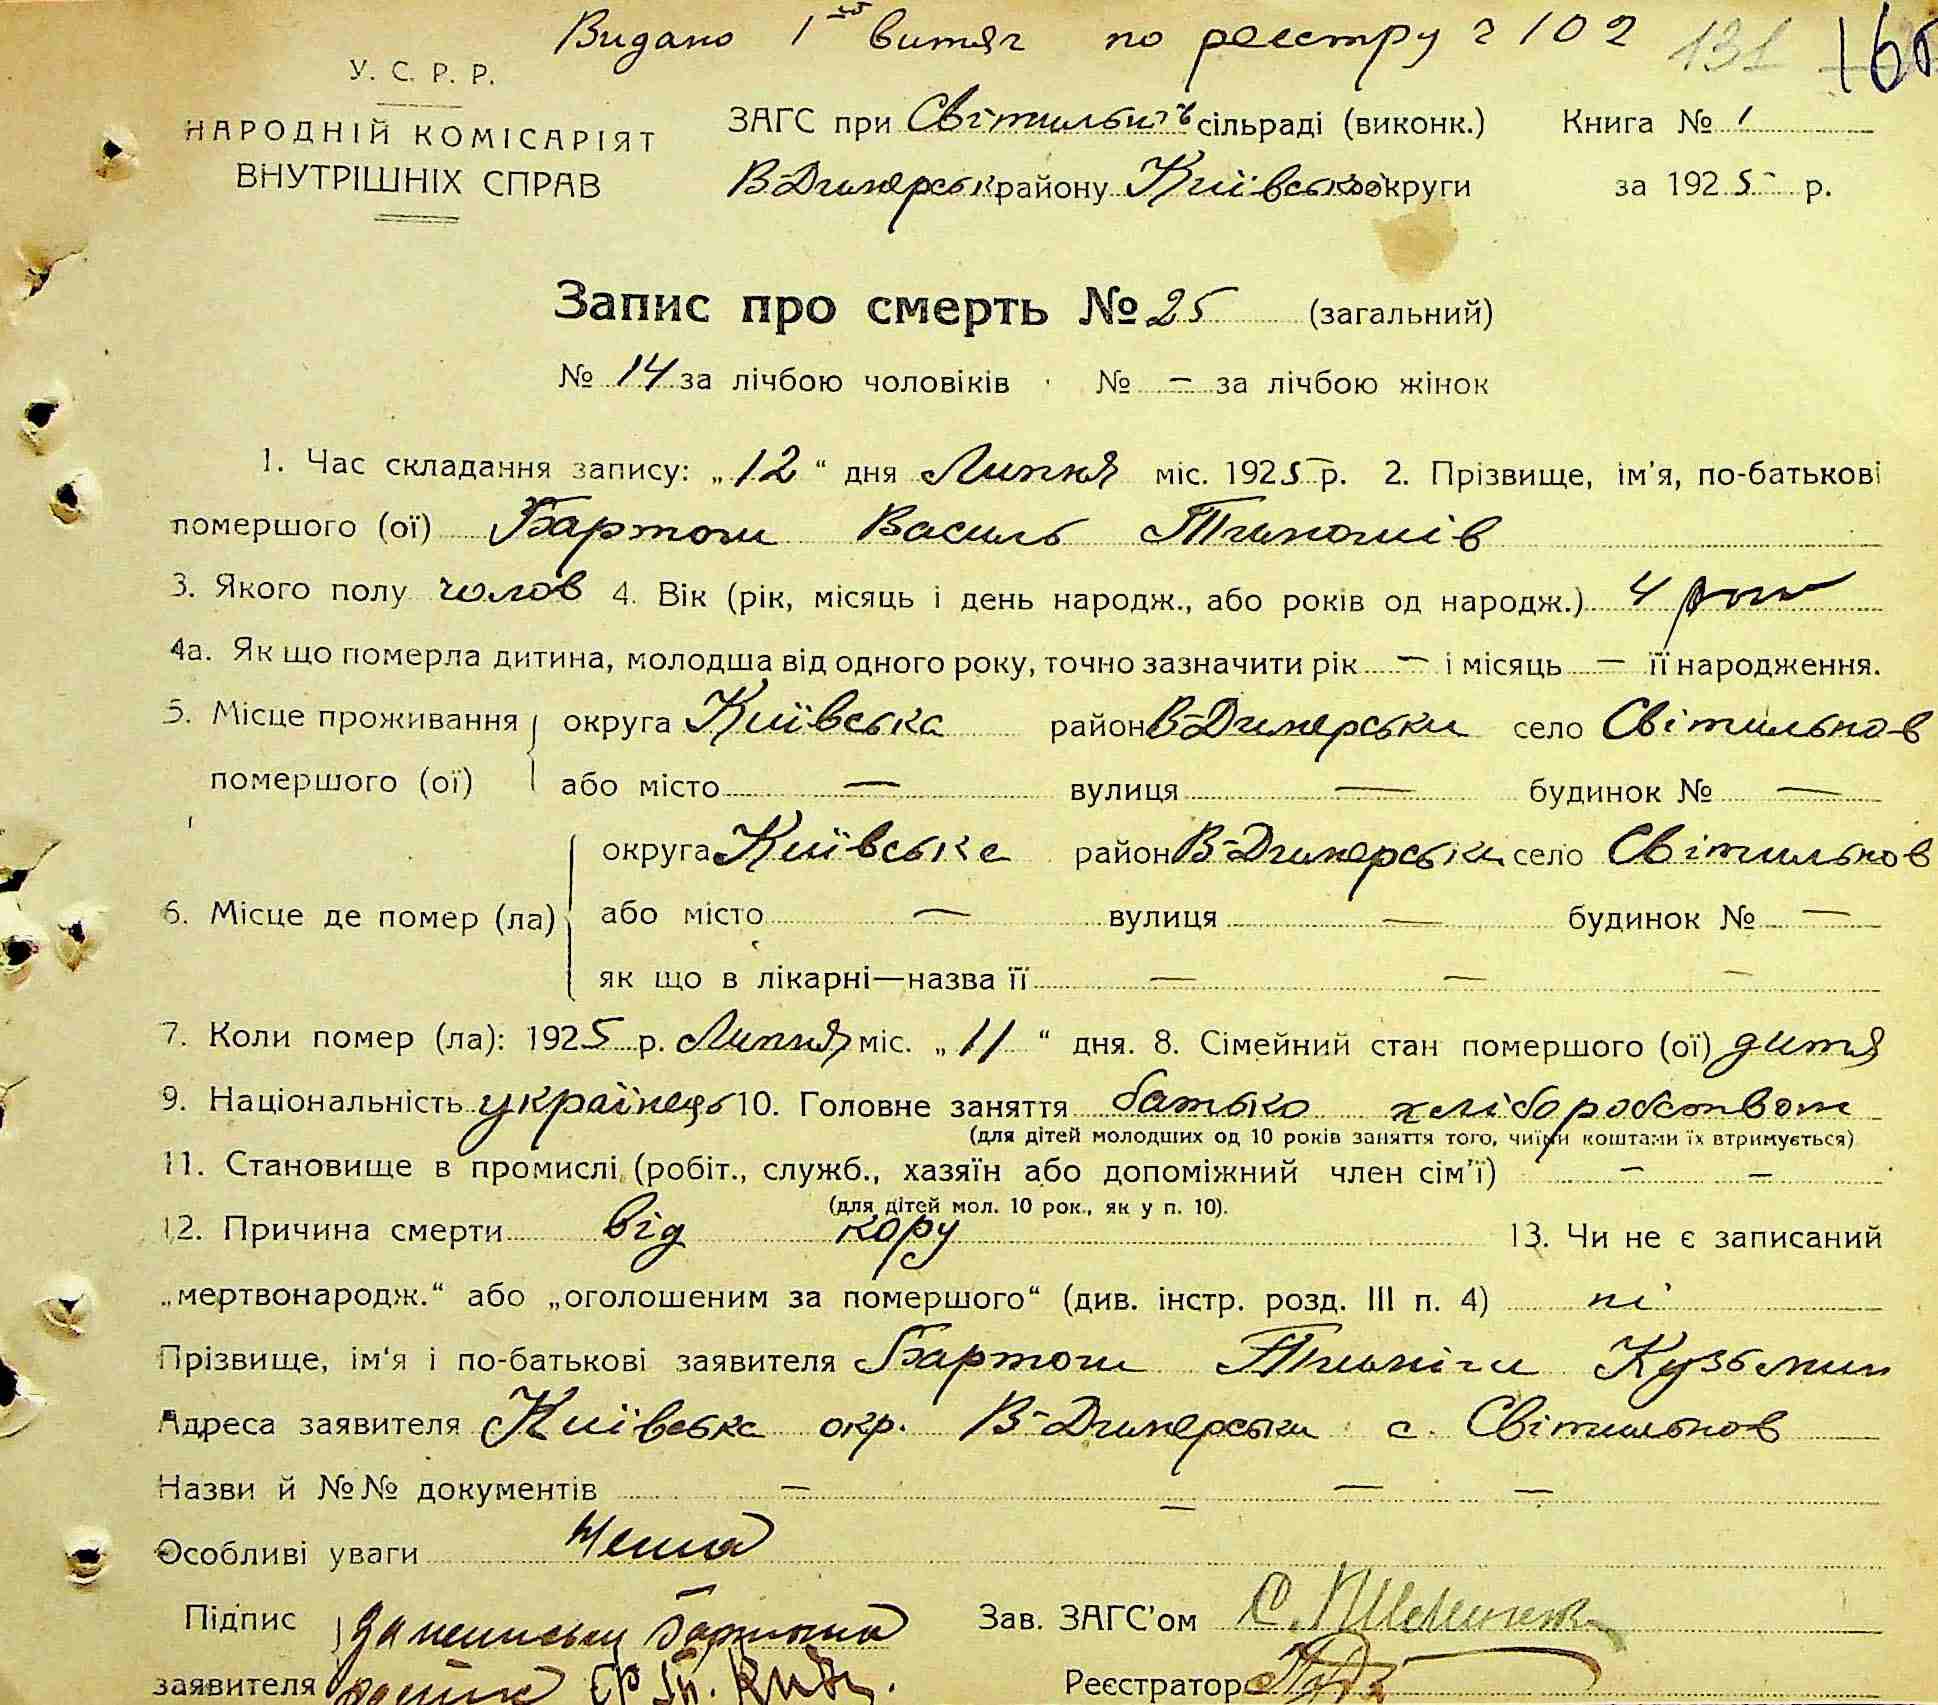 Видано 1 витяг по реєстру г 102 131 166
У. С. Р. Р.
НАРОДНІЙ КОМІСАРІЯТ
ВНУТРІШНІХ СПРАВ
ЗАГС при Світильнів сільраді (виконк.) Книга № 1
В-Димерськ району Київсько округи за 1925 р.
Запис про смерть № 25 (загальний)
№ 14 за лічбою чоловіків № — за лічбою жінок
1. Час складання запису: „12“ дня Липня міс. 1925 р. 2. Прізвище, ім'я, по-батькові
помершого (ої) Бартош Василь Тимошів
3. Якого полу чолов 4. Вік (рік, місяць і день народж., або років од народж.) 4 роки
4а. Як що померла дитина, молодша від одного року, точно зазначити рік — і місяць — її народження.
5. Місце проживання округа Київська район В-Димерськи село Світильнов
помершого (ої) або місто — вулиця — будинок № —
округа Київська район В-Димерськи село Світильнов
6. Місце де помер (ла) або місто — вулиця — будинок № —
як що в лікарні—назва її — — —
7. Коли помер (ла): 1925 р. Липня міс. „11“ дня. 8. Сімейний стан помершого (ої) дитя
9. Національність українець 10. Головне заняття батько хліборобством
(для дітей молодших од 10 років заняття того, чиїми коштами їх втримується)
11. Становище в промислі (робіт., служб., хазяїн або допоміжний член сім'ї) — —
(для дітей мол. 10 рок., як у п. 10).
12. Причина смерти від кору 13. Чи не є записаний
„мертвонародж.“ або „оголошеним за помершого“ (див. інстр. розд. III п. 4) ні
Прізвище, ім'я і по-батькові заявителя Бартош Кузьмин
Адреса заявителя Київська окр. В-Димерськи с. Світильнов
Назви й №№ документів — — — —
Особливі уваги Нема
Підпис Зав. ЗАГС'ом
заявителя Реєстратор